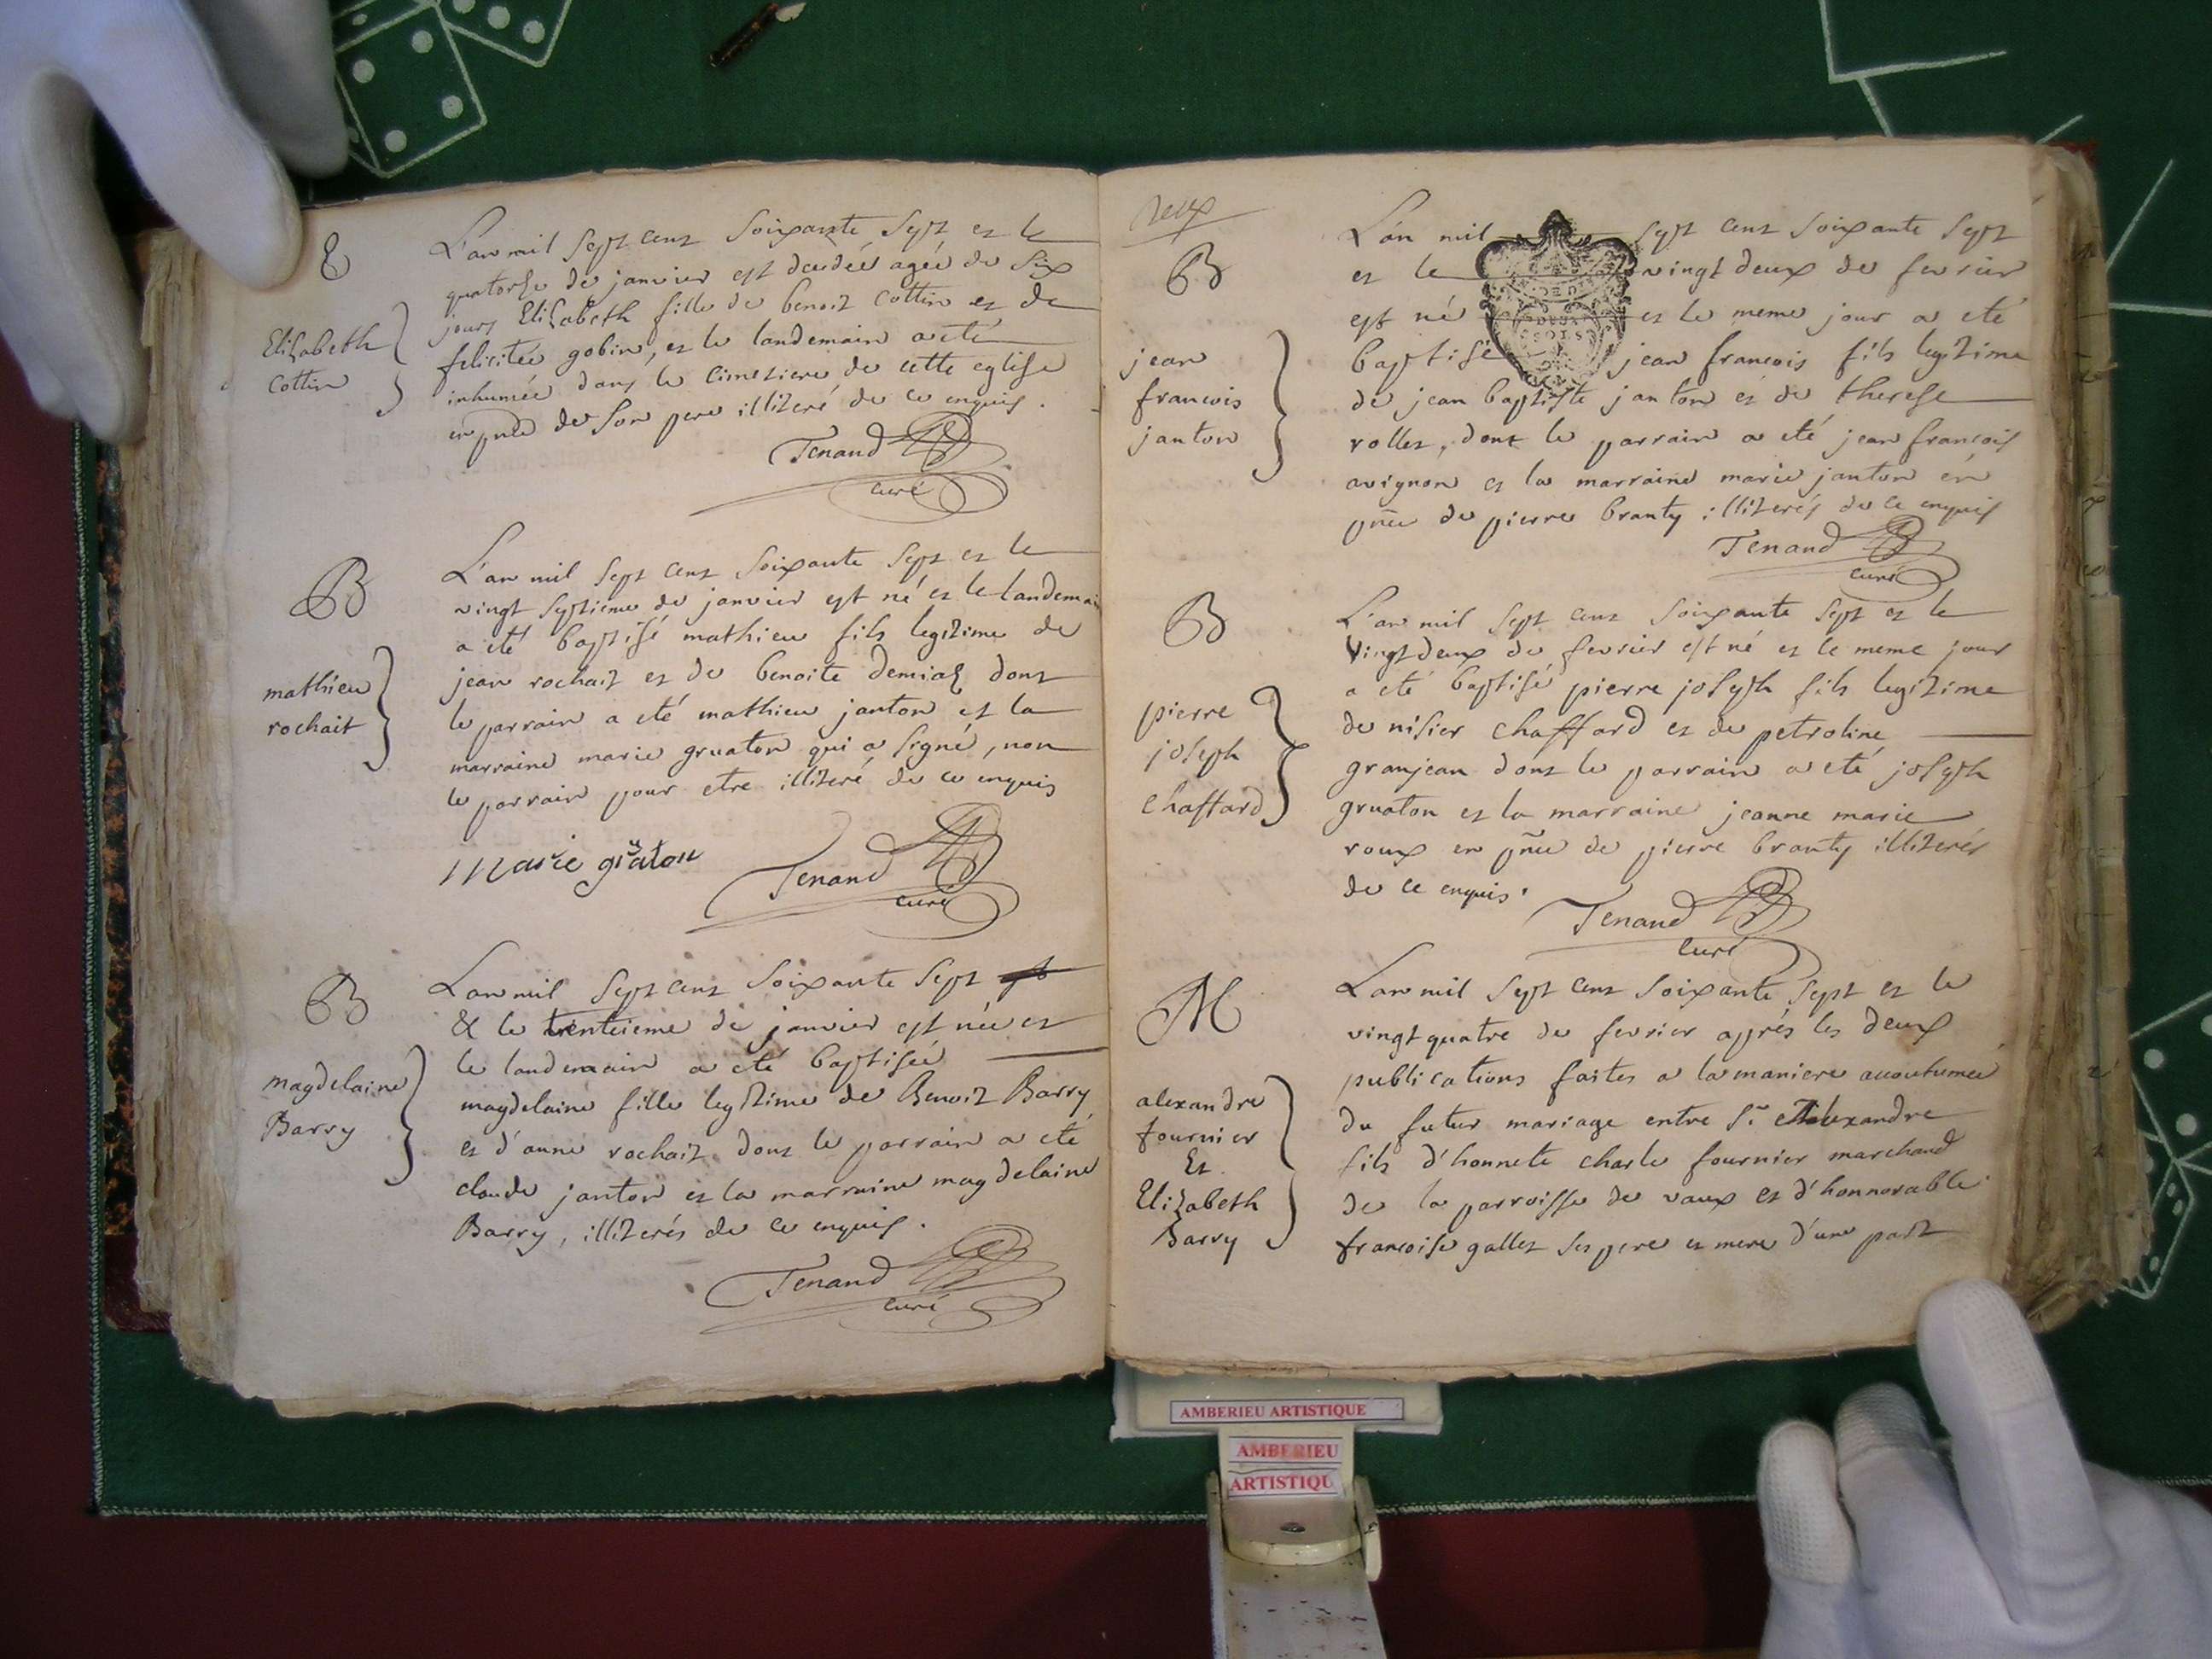 E
Elizabeth
Cottin
L'an mil sept cent soixante sept et le
quatorse de janvier est decedeé ageé de six
jours Elizabeth fille de benoit Cottin et de
feliciteé gobin, et le landemain a eté
inhumeé dans le cimetiere de cette eglise
en pnce de son pere illiteré de ce enquis.
Tenand
curé
B
mathieu
rochait
L'an mil sept cent soixante sept et le
vingt septieme de janvier est né et le landemain
a eté baptisé mathieu fils legitime de
jean rochait et de benoite demiaz dont
le parrain a eté mathieu janton et la
marraine marie gruaton qui a signé, non
le parrain pour etre illiteré de ce enquis
Marie gruaton
Tenand
curé
B
magdelaine
Barry
L'an mil sept cent soixante sept
& le trenteieme de janvier est neé et
le landemain a eté baptiseé
magdelaine fille legitime de Benoit Barry
et d'anne rochait dont le parrain a eté
claude janton et la marraine magdelaine
Barry, illiterés de ce enquis.
Tenand
curé
deux
B
jean
francois
janton
L'an mil sept cent soixante sept
et le vingt deux de fevrier
est né et le meme jour a eté
baptisé jean francois fils legitime
de jean baptiste janton et de therese
rollet, dont le parrain a eté jean francois
avignon et la marraine marie janton en
pñce de pierre branty illiterés de ce enquis
Tenand
curé
B
pierre
joseph
chaffard
L'an mil sept cent soixante sept et le
vingt deux de fevrier est né et le meme jour
a eté baptisé pierre joseph fils legitime
de nisier chaffard et de petroline
granjean dont le parrain a eté joseph
gruaton et la marraine jeanne marie
roux en pñce de pierre branty illiterés
de ce enquis.
Tenand
curé
M
alexandre
fournier
Et
Elizabeth
Barry
L'an mil sept cent soixante sept et le
vingt quatre de fevrier aprés les deux
publications faites a la maniere accoutumeé
du futur mariage entre Sr. Alexandre
fils d'honnete charle fournier marchand
de la parroisse de vaux et d'honnorable
francoise gallet ses pere et mere d'une part
AMBERIEU ARTISTIQUE
AMBERIEU
ARTISTIQU